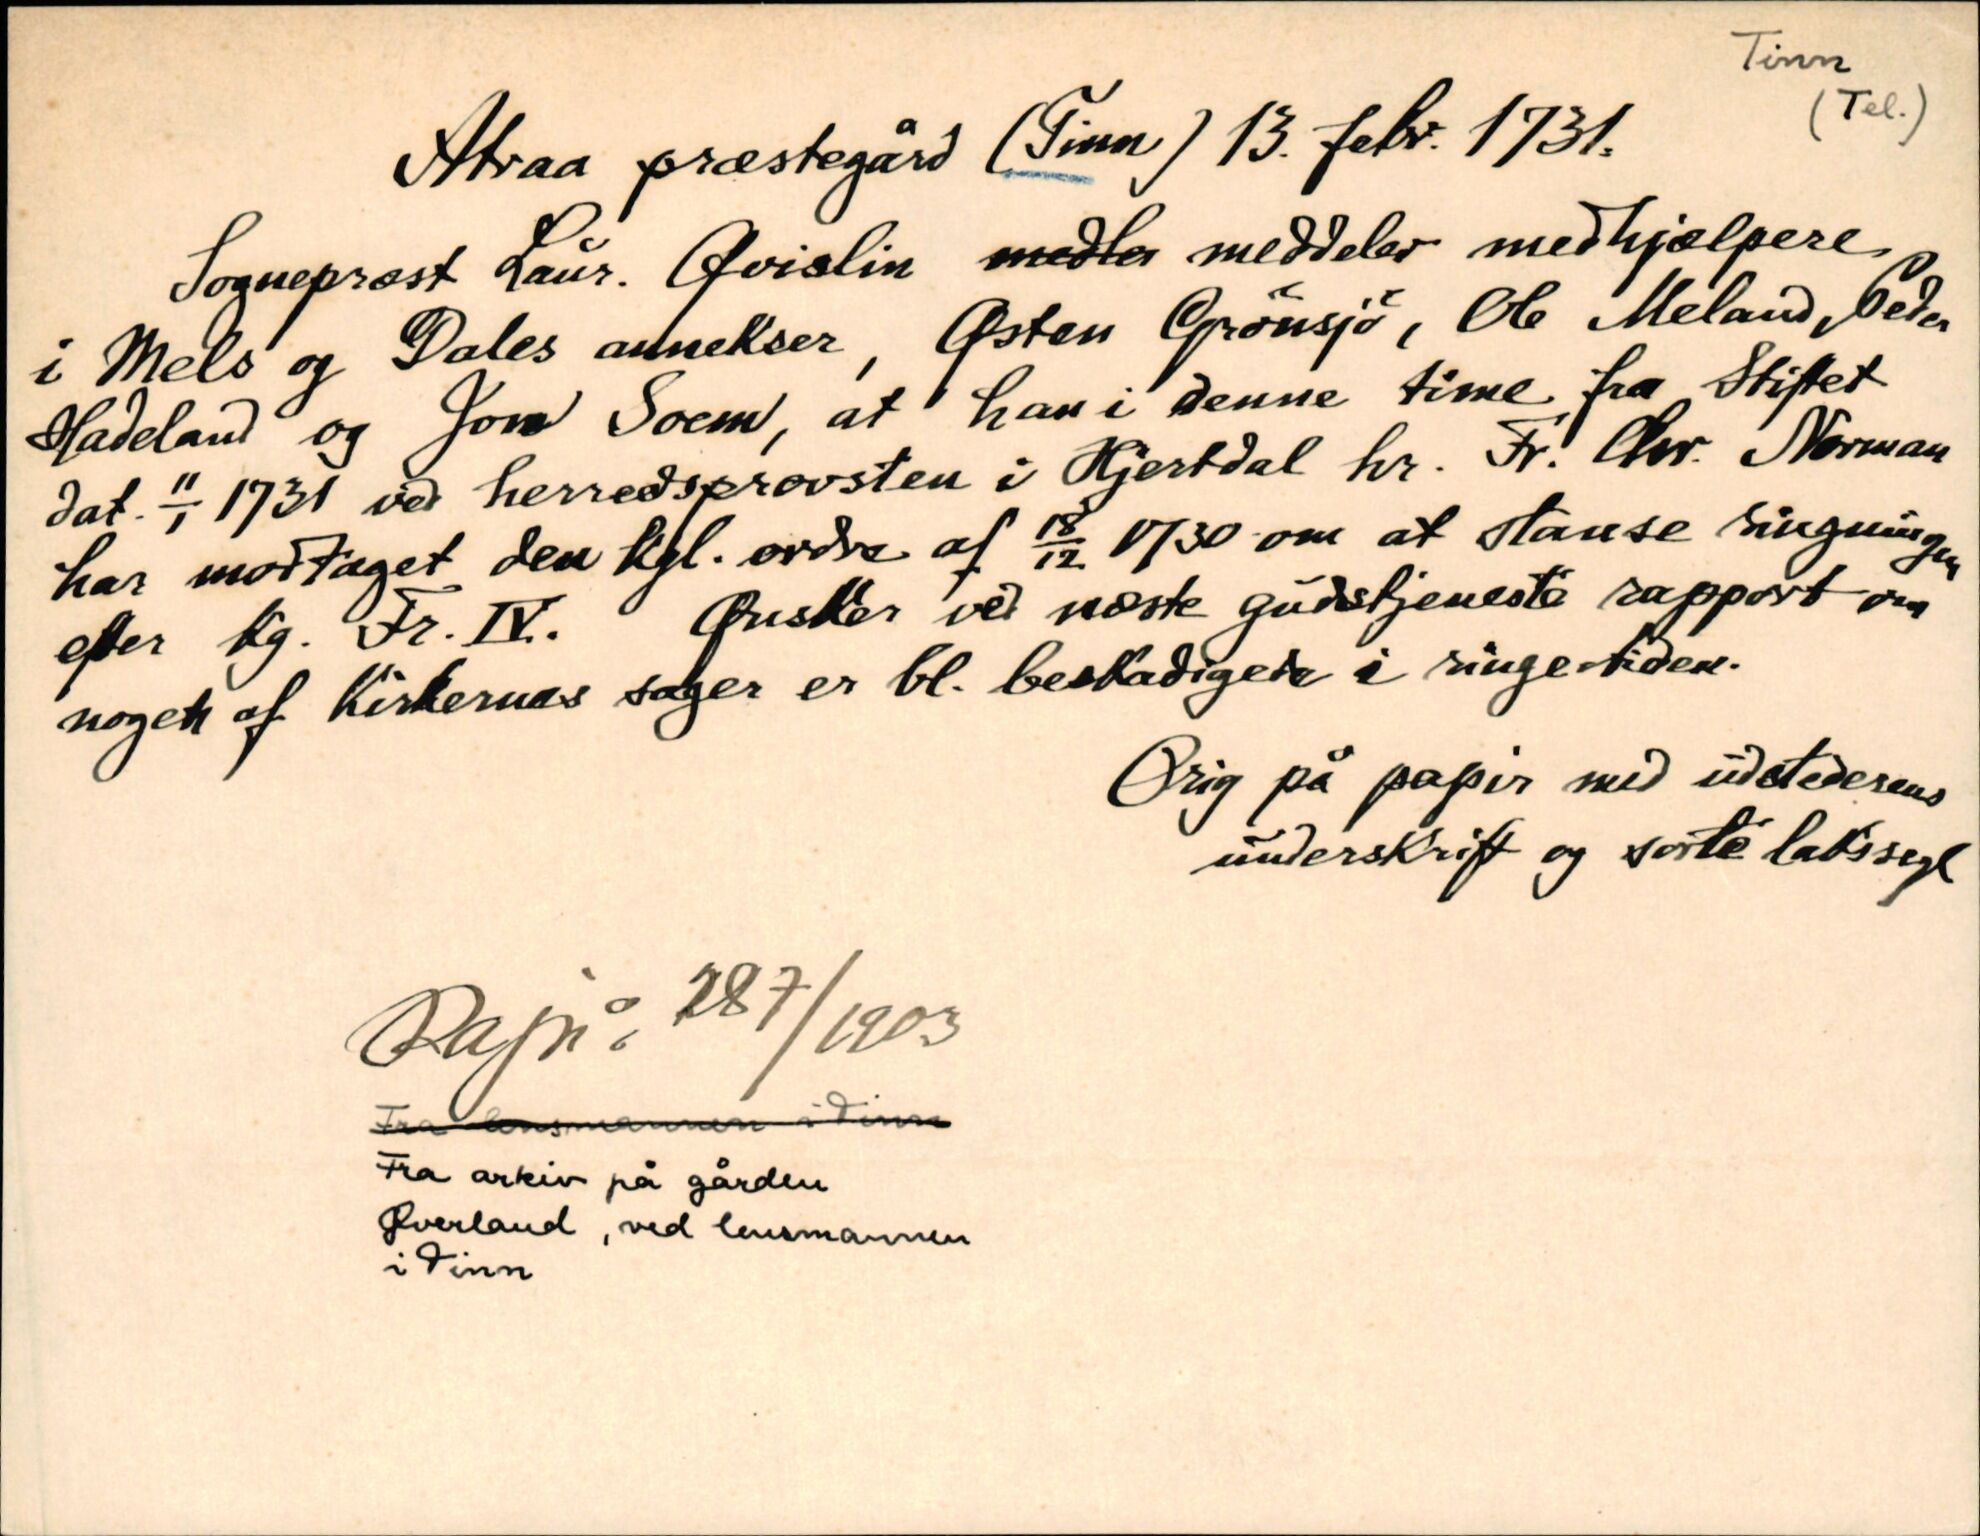 Tinn
(Tel.)
Atraa præstegård (Tinn) 13. febr. 1731.
Sognepræst Laur. Qvislin medler meddeler medhjælpere
i Mels og Dales annekser, Østen Grönsjö, Ole Meland, Peder
Hadeland og Jon Soem, at han i denne time fra Stiftet
dat. 11/1 1731 ved herredsprovsten i Hjertdal hr. Fr. Chr. Norman
har modtaget den kgl. ordre af 18/12 1730 om at stanse ringningen
efter kg. Fr. IV. Ønsker ved næste gudstjeneste rapport om
noget af kirkernes sager er bl. beskadigede i ringetiden.
Orig på papir med udstederens
underskrift og sorte lakssegl
Papir: 287/1903
Fra lensmannen i Tinn
Fra arkiv på gården
Øverland, ved lensmannen
i Tinn